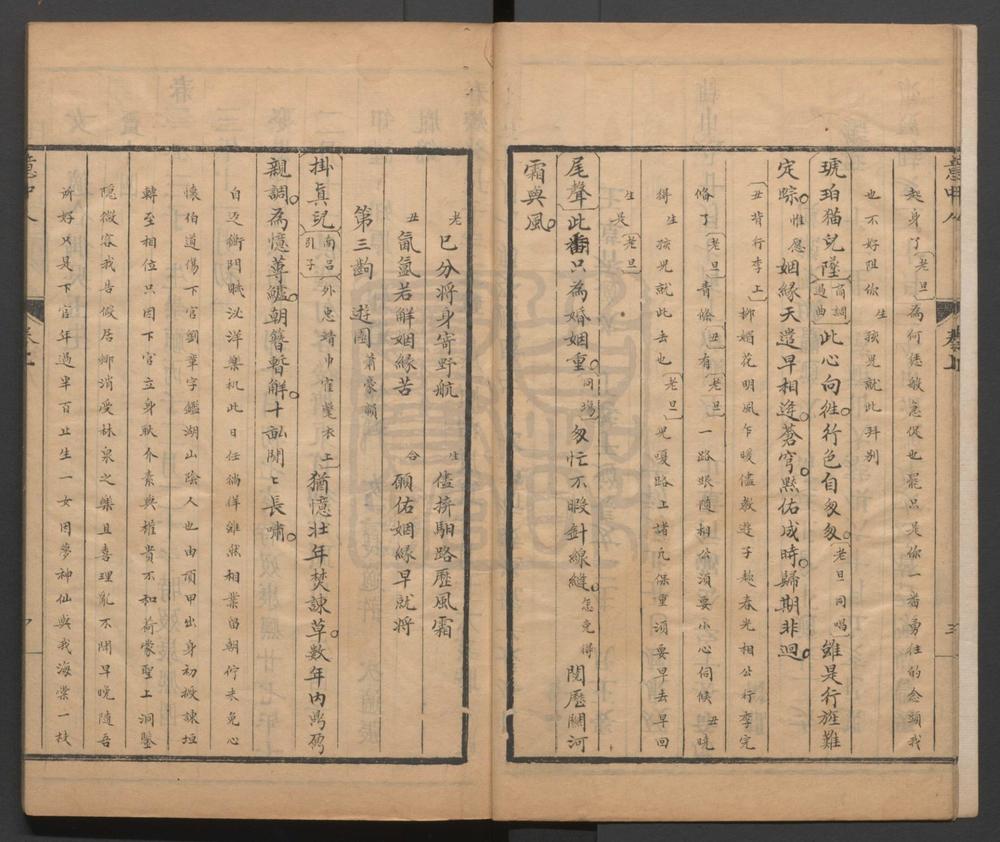 起身了〔老旦〕為何恁般急促也罷只是你一番勇往的念頭我
也不好阻你生孩兒就此拜別
琥珀猫兒墜〔商調過曲〕此心向往行色自匆匆〔老旦同唱〕雖是行旌難
定踪惟愿姻緣天遣早相逢蒼穹黙佑成時歸期非迥
〔丑背行李上〕柳媚花明風乍暖儘教遊子趂春光相公行李完
俻了〔老旦〕青絛〔丑〕有〔老旦〕一路跟隨相公須要小心伺候丑曉
得生孩兒就此去也〔老旦〕兒嗄路上諸凢保重須要早去早回
生是〔老旦〕
尾聲〔此番只為婚姻重同塲匆忙不暇針線縫怎免得閱歷關河
霜與風
老已分將身寄野航生儘拚駟路歷風霜
丑氤氳若解姻緣苦合願佑姻緣早就將
第三齣遊園蕭豪韻
掛真兒〔南呂引子〕〔外忠靖巾宦氅衣上〕猶憶壯年焚諫草數年內鳥
親調為憶蓴鱸朝簪暫解十畝閒〻長嘯
自返衡門賦沁洋樂机此日任徜徉雖然相業留朝佇未免心
懐伯道傷下官劉章字鑑湖山陰人也由項甲出身初授諫垣
轉至相位只因下官立身耿介素與權貴不和荷蒙聖上洞鑒
隠微容我告假居鄉消受林泉之樂且喜理亂不聞早晚隨吾
所好只是下官年過半百止生一女因夢神仙與我海棠一枝
意中人
卷上
三
意中人
卷上